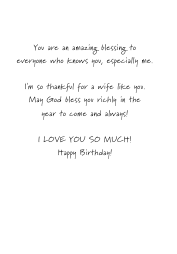 You are an amazing blessing to
everyone who knows you, especially me.
I'm so thankful for a wife like you.
May God bless you richly in the
year to come and always!
I LOVE YOU SO MUCH!
Happy Birthday!